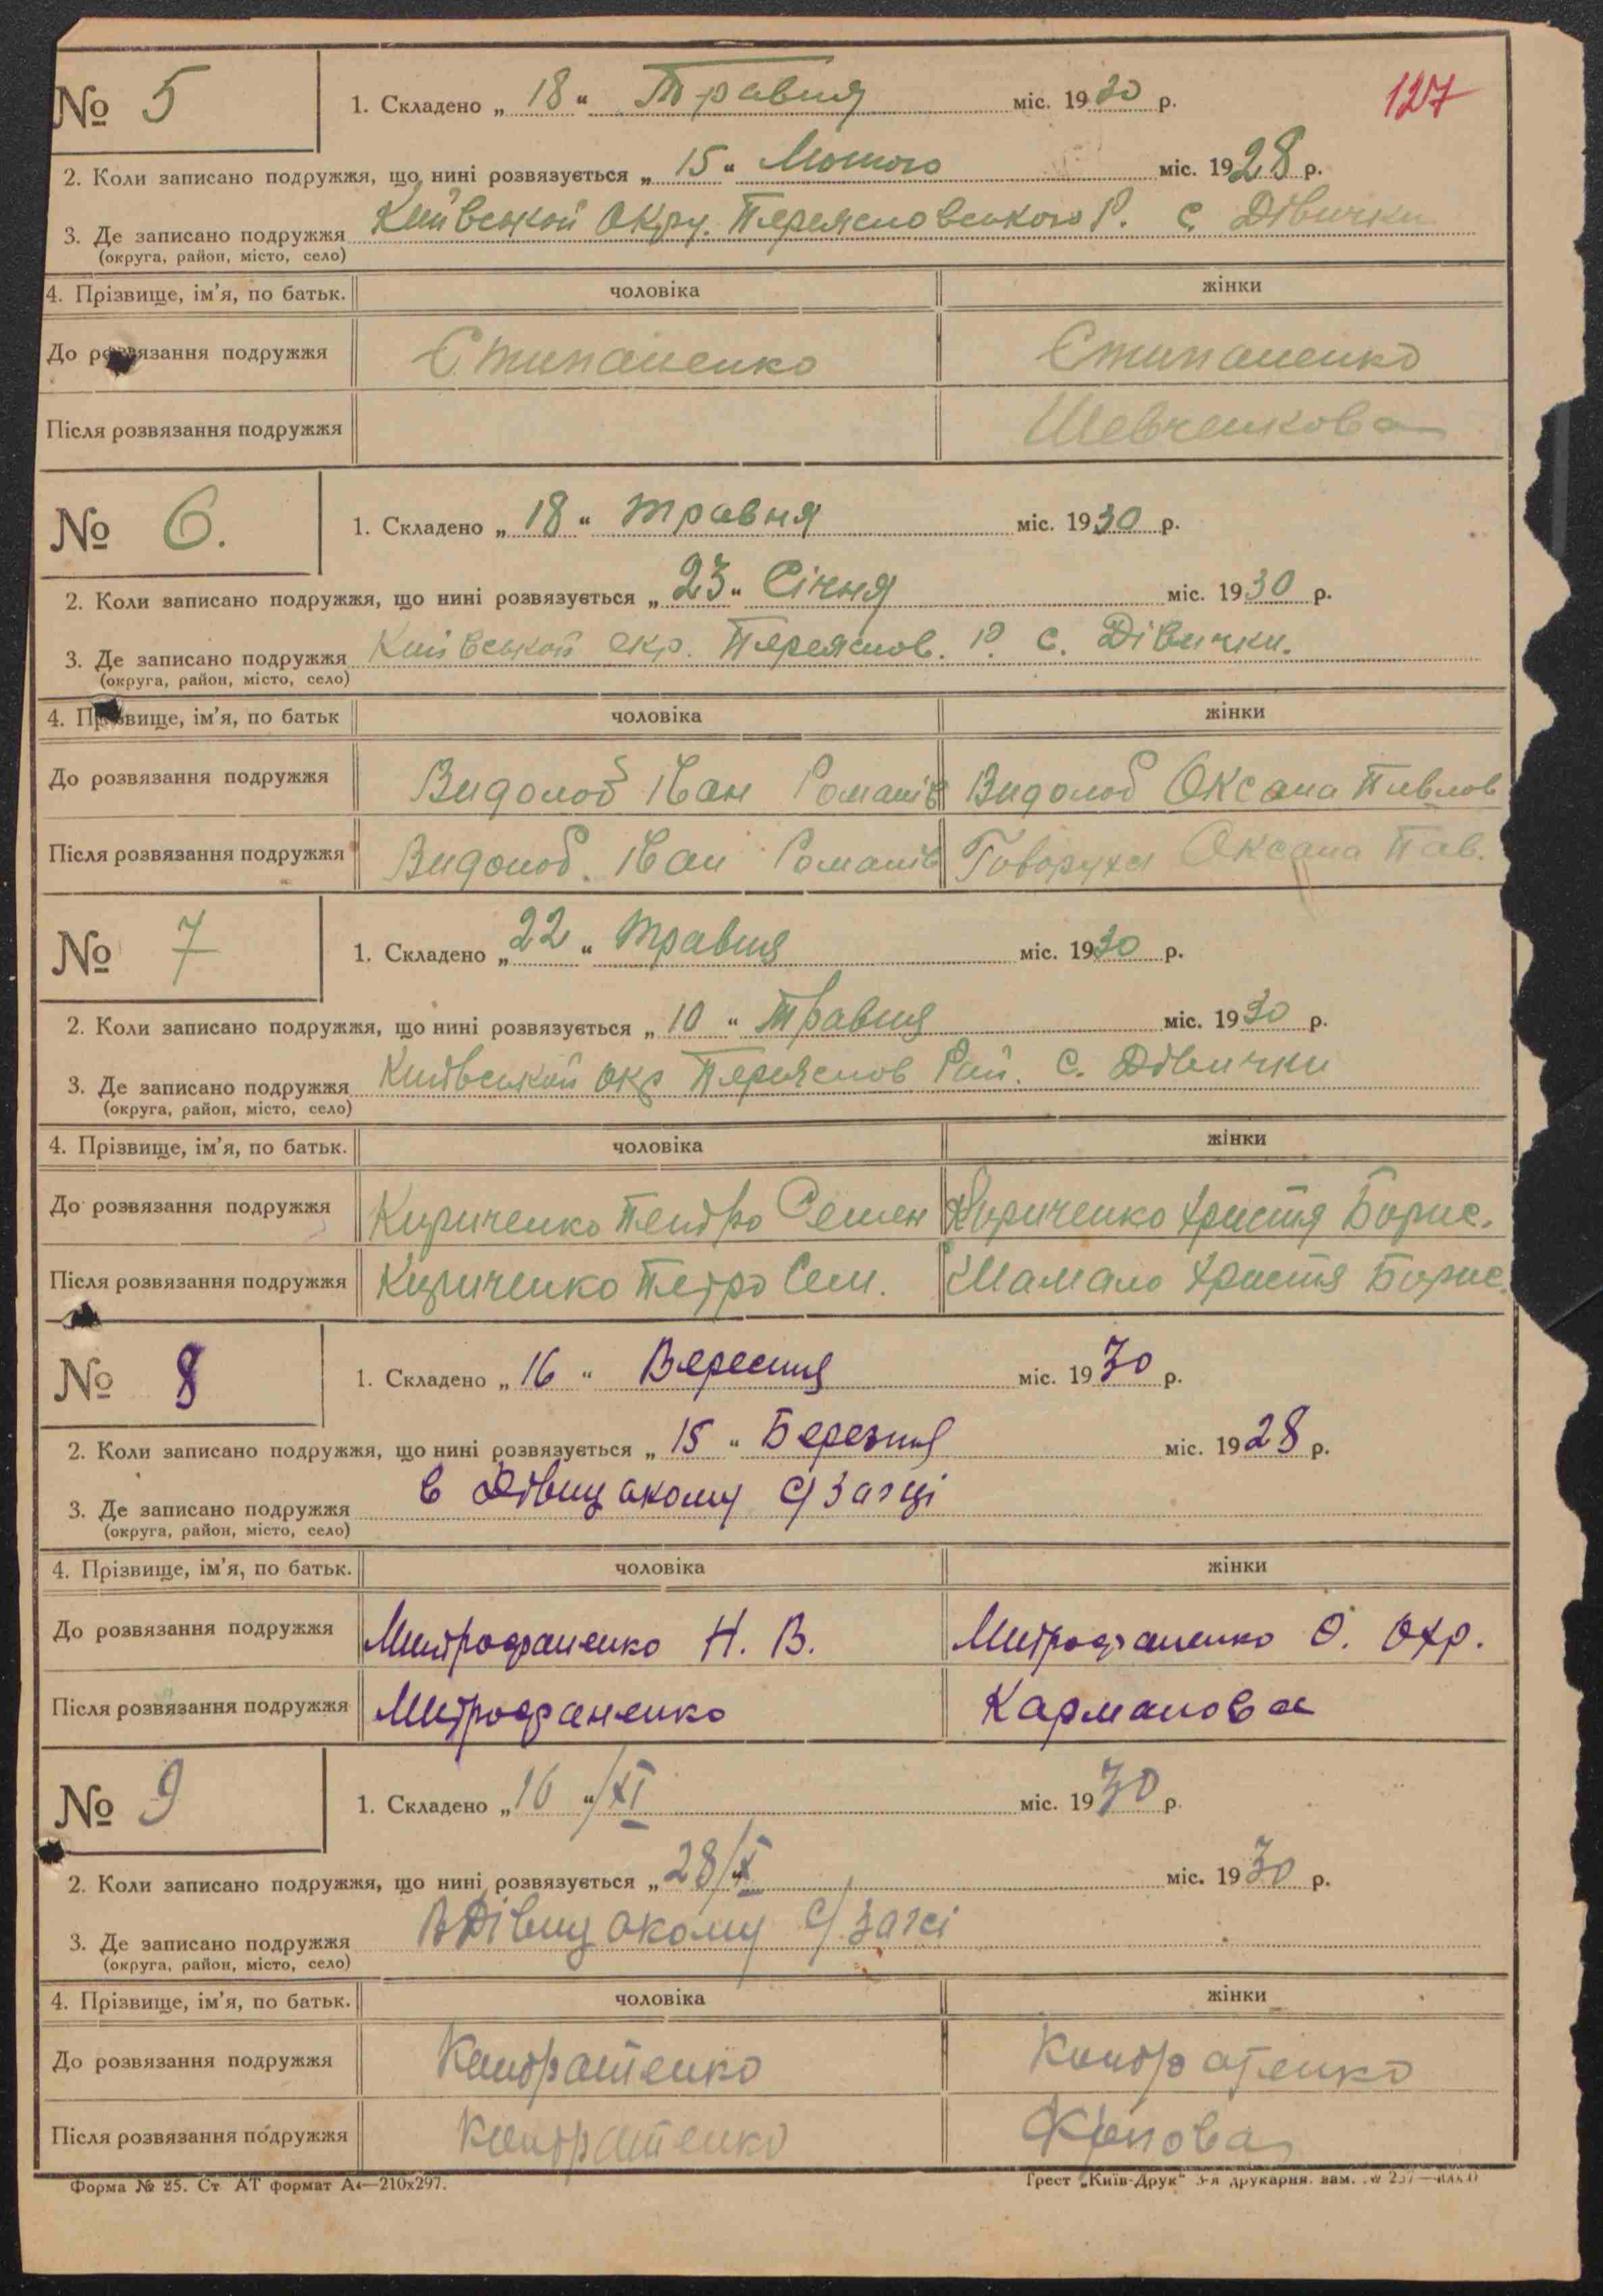 127
№ 5
1. Складено „ 18 “ Травня міс. 1930 р.
2. Коли записано подружжя, що нині розвязується „ 15 “ Лютого міс. 1928 р.
3. Де записано подружжя Київської Окру. Переясловського Р. с. Дівички
(округа, район, місто, село)
4. Прізвище, ім’я, по батьк. чоловіка жінки
До розвязання подружжя Стипаненко Стипаненко
Після розвязання подружжя Шевченкова
№ 6.
1. Складено „ 18 “ травня міс. 1930 р.
2. Коли записано подружжя, що нині розвязується „ 23 “ Січня міс. 1930 р.
3. Де записано подружжя Київської окр. Переяслов. Р. с. Дівички.
(округа, район, місто, село)
4. Прізвище, ім’я, по батьк чоловіка жінки
До розвязання подружжя Видолоб Іван Романів Видолоб Оксана Павлов
Після розвязання подружжя Видолоб. Іван Романів Говоруха Оксана Пав.
№ 7
1. Складено „ 22 “ травня міс. 1930 р.
2. Коли записано подружжя, що нині розвязується „ 10 “ Травня міс. 1930 р.
3. Де записано подружжя Київської окр Переяслов Рай. с. Дівички
(округа, район, місто, село)
4. Прізвище, ім’я, по батьк. чоловіка жінки
До розвязання подружжя Кириченко Петро Семен Кириченко Христя Борис.
Після розвязання подружжя Кириченко Петро Сем. Шамало Христя Борис.
№ 8
1. Складено „ 16 “ Вересня міс. 1930 р.
2. Коли записано подружжя, що нині розвязується „ 15 “ Березня міс. 1928 р.
3. Де записано подружжя в Дівицькому с/загсі
(округа, район, місто, село)
4. Прізвище, ім’я, по батьк. чоловіка жінки
До розвязання подружжя Митрофаненко Н. В. Митрофаненко О. Охр.
Після розвязання подружжя Митрофаненко Карманова
№ 9
1. Складено „ 16 “/XI міс. 1930 р.
2. Коли записано подружжя, що нині розвязується „ 28/“X міс. 1930 р.
3. Де записано подружжя В Дівицькому с/загсі
(округа, район, місто, село)
4. Прізвище, ім’я, по батьк. чоловіка жінки
До розвязання подружжя Кондратенко Кондратенко
Після розвязання подружжя Кондратенко
Форма № 25. Ст АТ формат А4—210х297. Трест „Київ-Друк“ 3-я друкарня. зам.